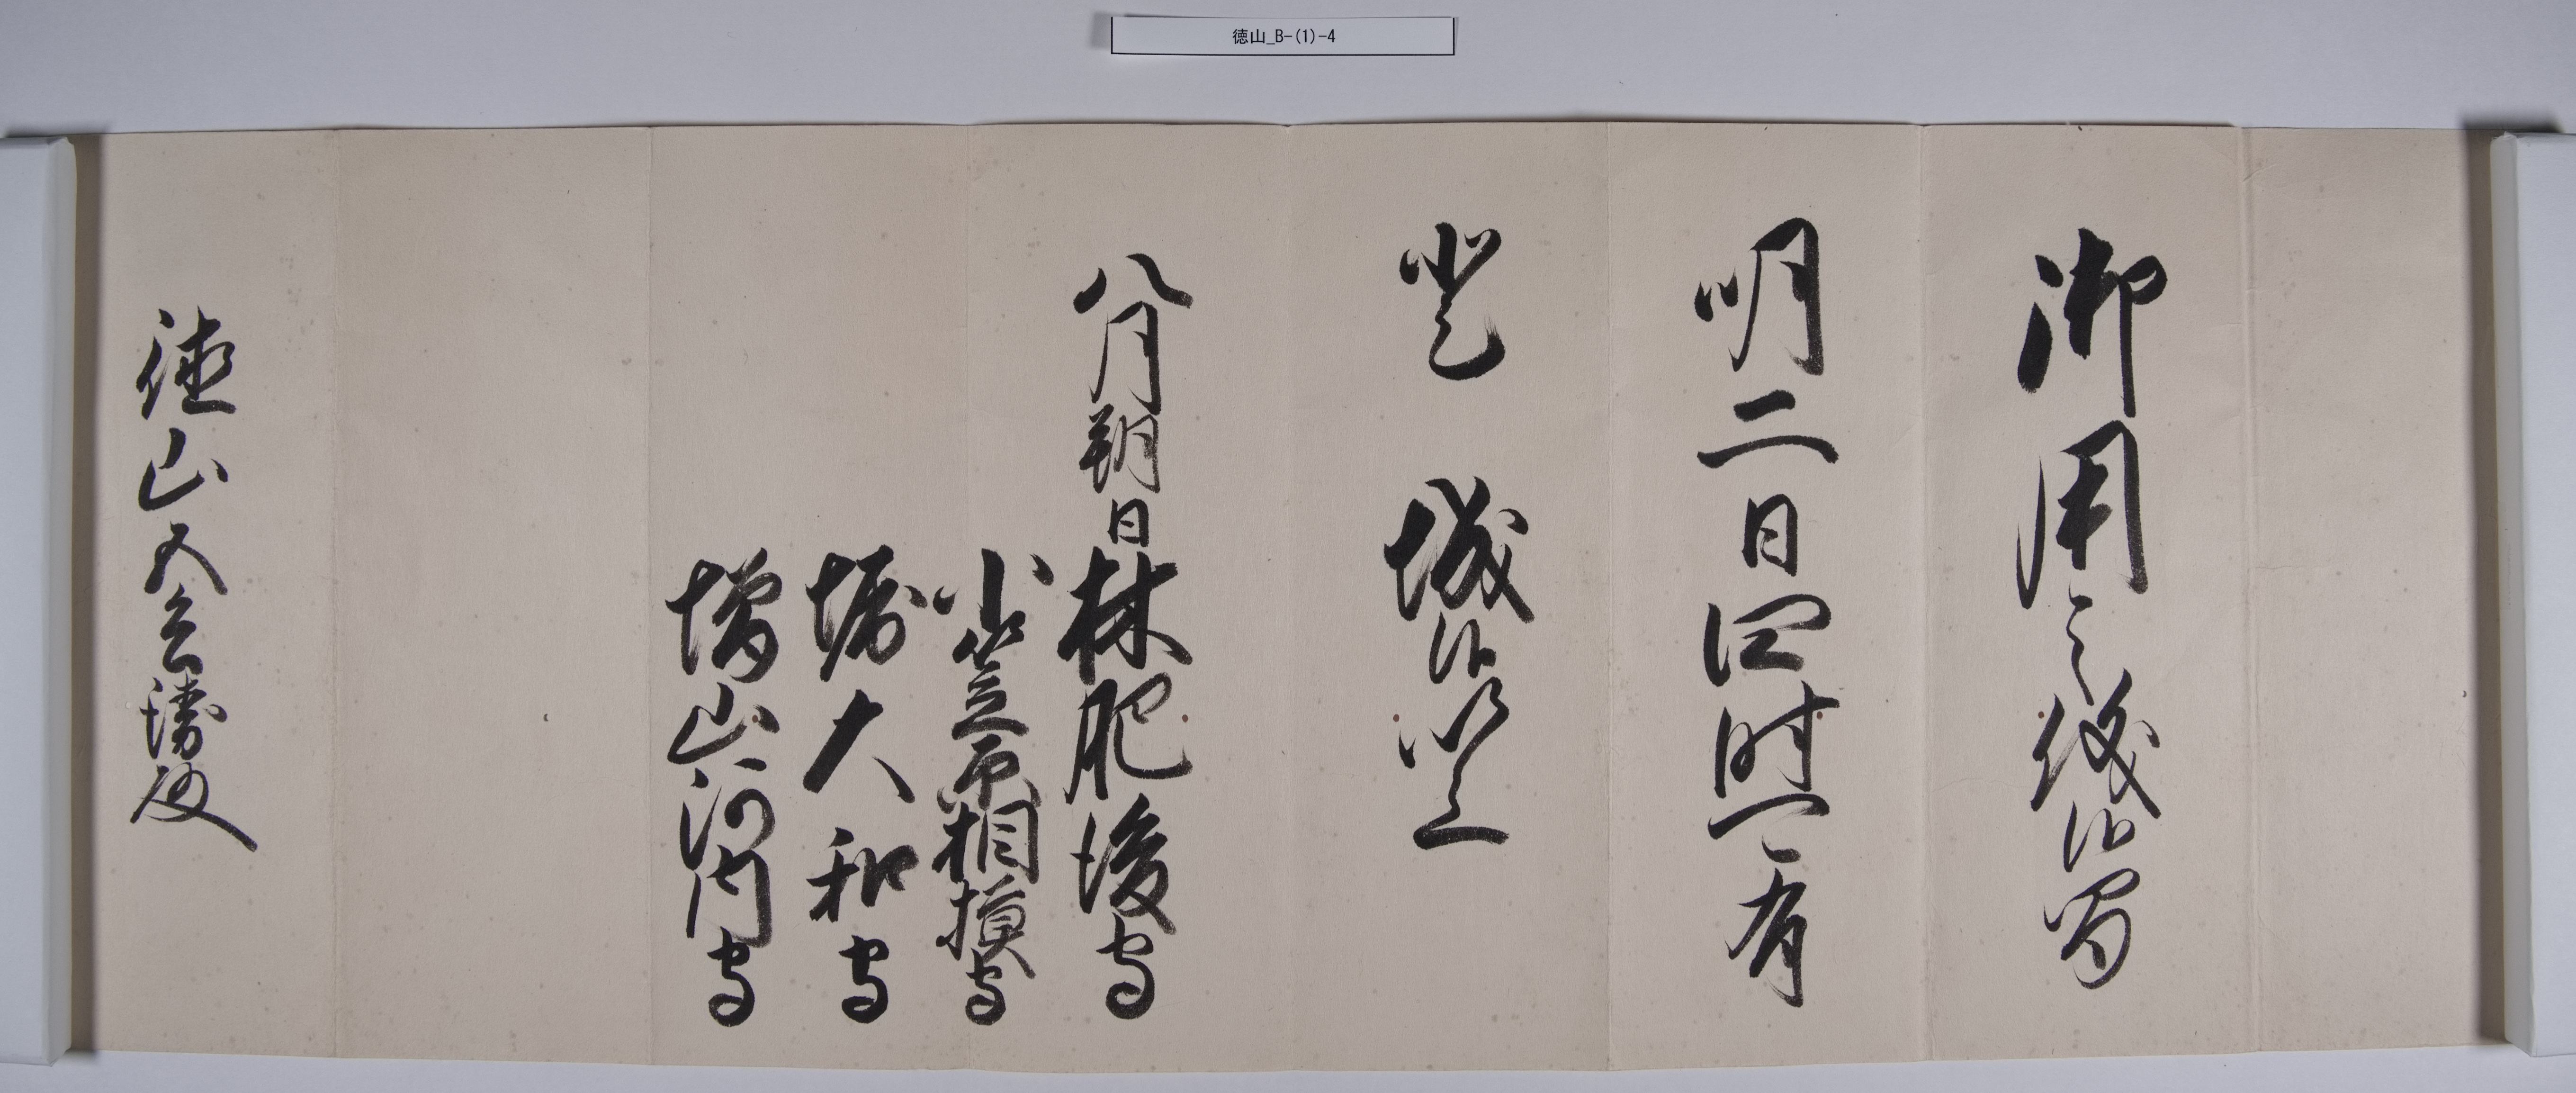 徳山_B-(1)-4
御用之儀候間
明二日四時可有
登 城候以上
八月朔日 林肥後守
小笠原相模守
堀大和守
増山河内守
徳山五兵衛殿